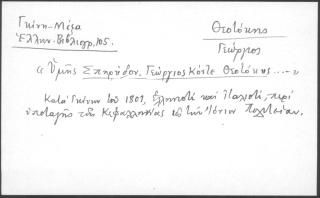 Γκίνη-Μέξα
Ἑλλην. Βιβλιογρ. 105.
Θεοτόκης
Γεώργιος
«Ἡμεῖς Σπυρίδων, Γεώργιος Κόντε Θεοτόκης ....»
Κατά Γκίνην τοῦ 1801, Ἑλληνιστί καί Ἰταλιστί, περί
ὑποταγῆς τῆς Κεφαλληνίας εἰς τήν Ἰόνιον Πολιτείαν.